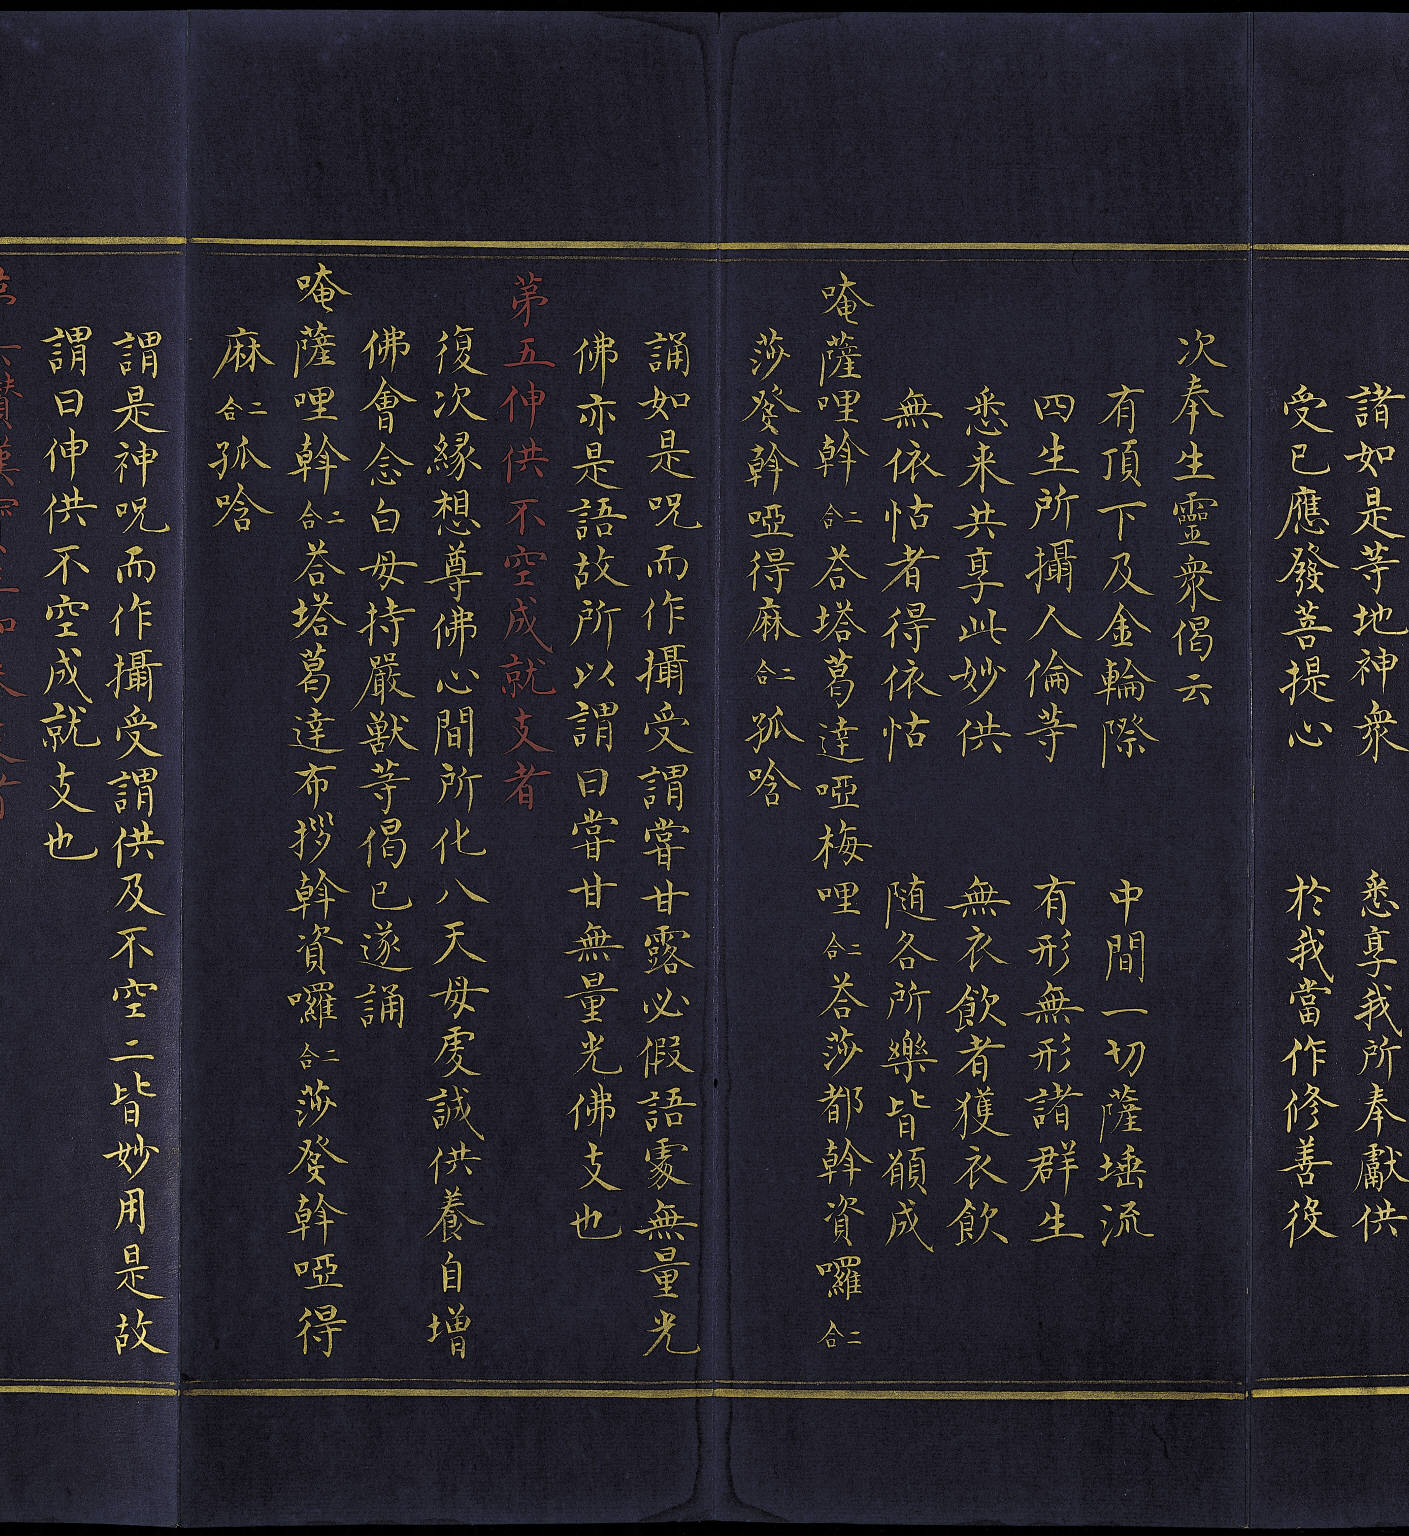 諸如是等地神衆　悉享我所奉獻供
受已應發菩提心　於我當作修善役
次奉生靈衆偈云
有頂下及金輪際　中間一切薩埵流
四生所攝人倫等　有形無形諸群生
悉来共享此妙供　無衣飲者獲衣飲
無依怙者得依怙　随各所樂皆願成
唵薩哩斡二合荅塔葛達啞梅哩二合荅莎都斡資囉二合
莎發斡啞得麻二合孤唅
誦如是呪而作攝受謂甞甘露必假語處無量光
佛亦是語故所以謂曰甞甘無量光佛支也
第五伸供不空成就支者
復次緣想尊佛心間所化八天母虔誠供養自增
佛會念白母持嚴獸等偈已遂誦
唵薩哩斡二合荅塔葛達布拶斡資囉二合莎發斡啞得
麻二合孤唅
謂是神呪而作攝受謂供及不空二皆妙用是故
謂曰伸供不空成就支也